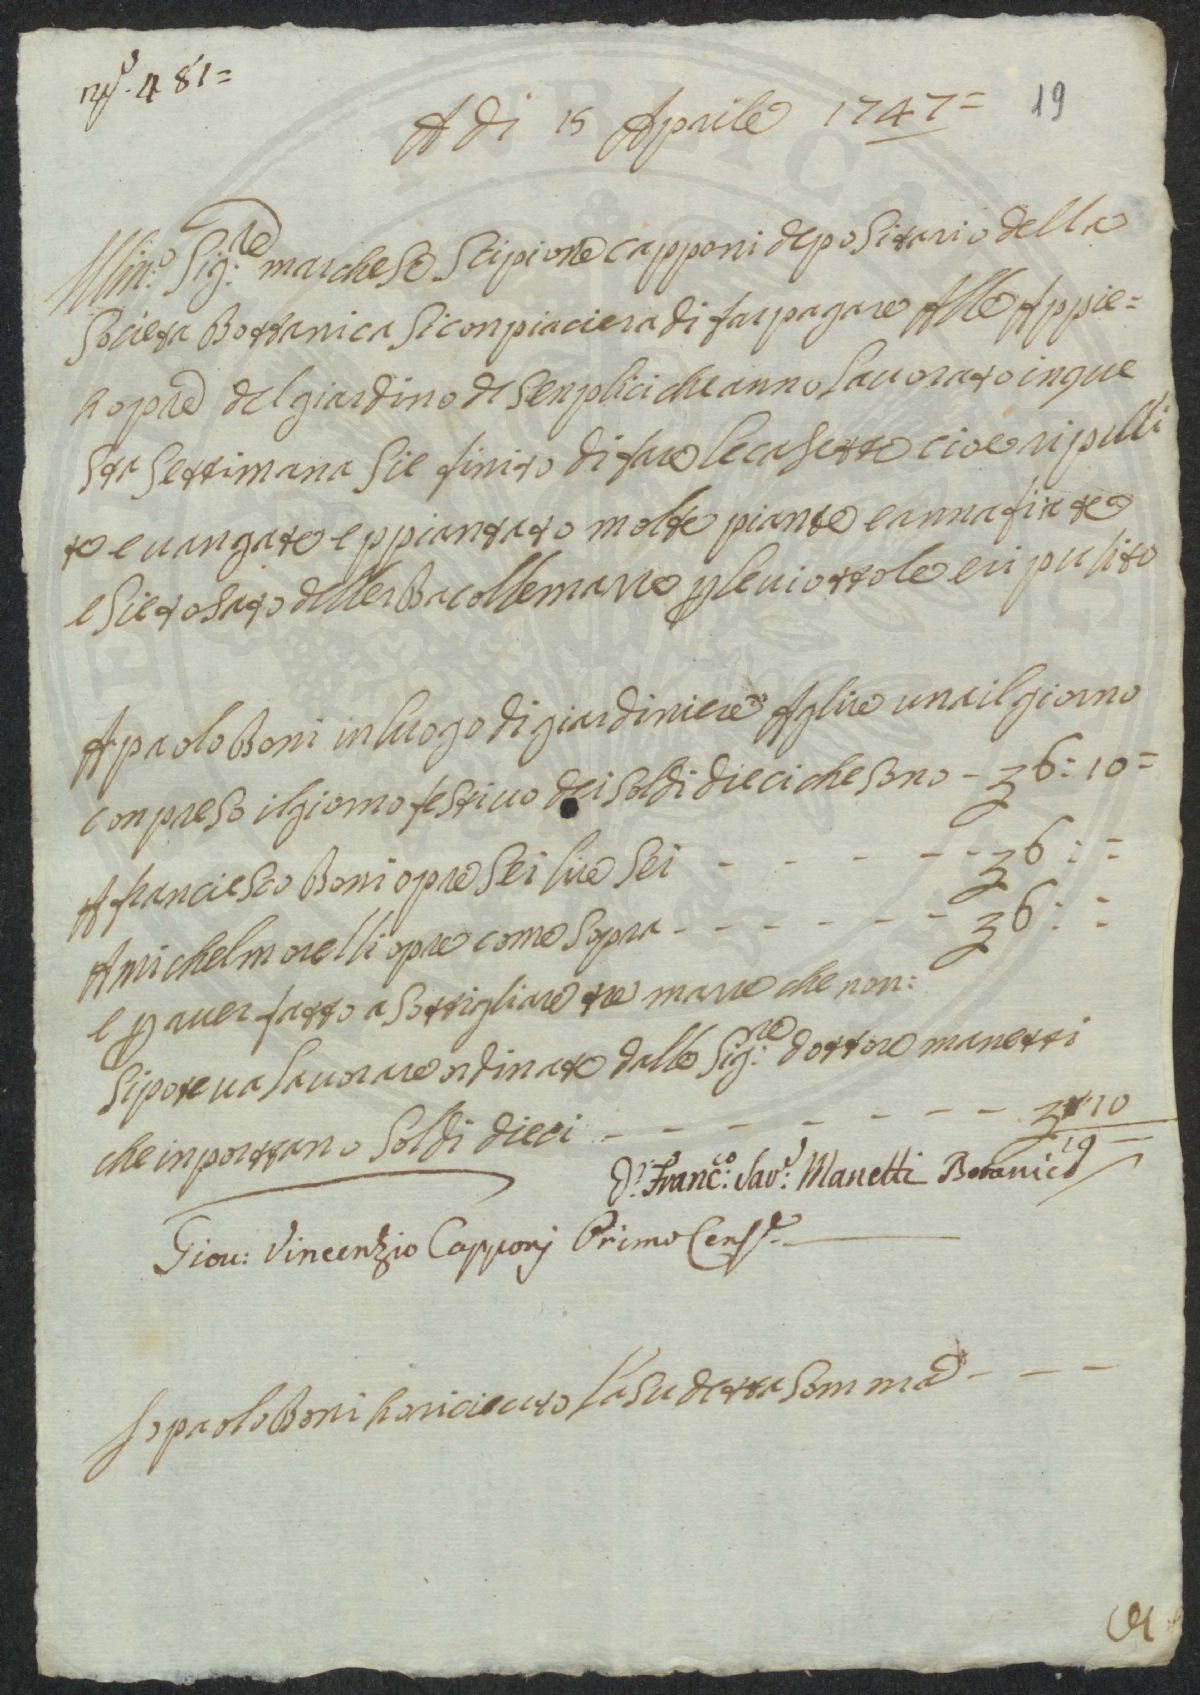 N.º 481=
19
A di 15 Aprile 1747=
Illm:º Sig:re marchese Scipione Capponi depositario della
Società Bottanica Si conpiaciera di far pagare Alle Appie=
h opre del giardino de Senplici che anno lavorato in que
sta Settimana Sie finito di fare le casette cioe ripulli
te e vangate e ppiantato molte piante e annafiate
e Sie tosato dell erba colle marre p le viottole e ripulito
A paolo Boni in luogo di giardiniere A lire una il giorno
conpreso il giorno festivo dei soldi dieci che sono - 36: 10=
A franciesco Boni opre Sei lire Sei - - - - - - 36: =
A Michel morelli opre come sopra - - - - - - 36: =
e p aver fatto a sottigliare tre marre che non:
Si poteva lavorare ordinate dallo Sig:re dottore manetti
che inportano Soldi dieci - - - - - - - 3 10
19 —
D.r Franc:co Sav:º Manetti Botanico
Giov: Vincenzio Capponj Primo Cens.re
Io paolo Boni ho ricievto la su detta Somma - - -